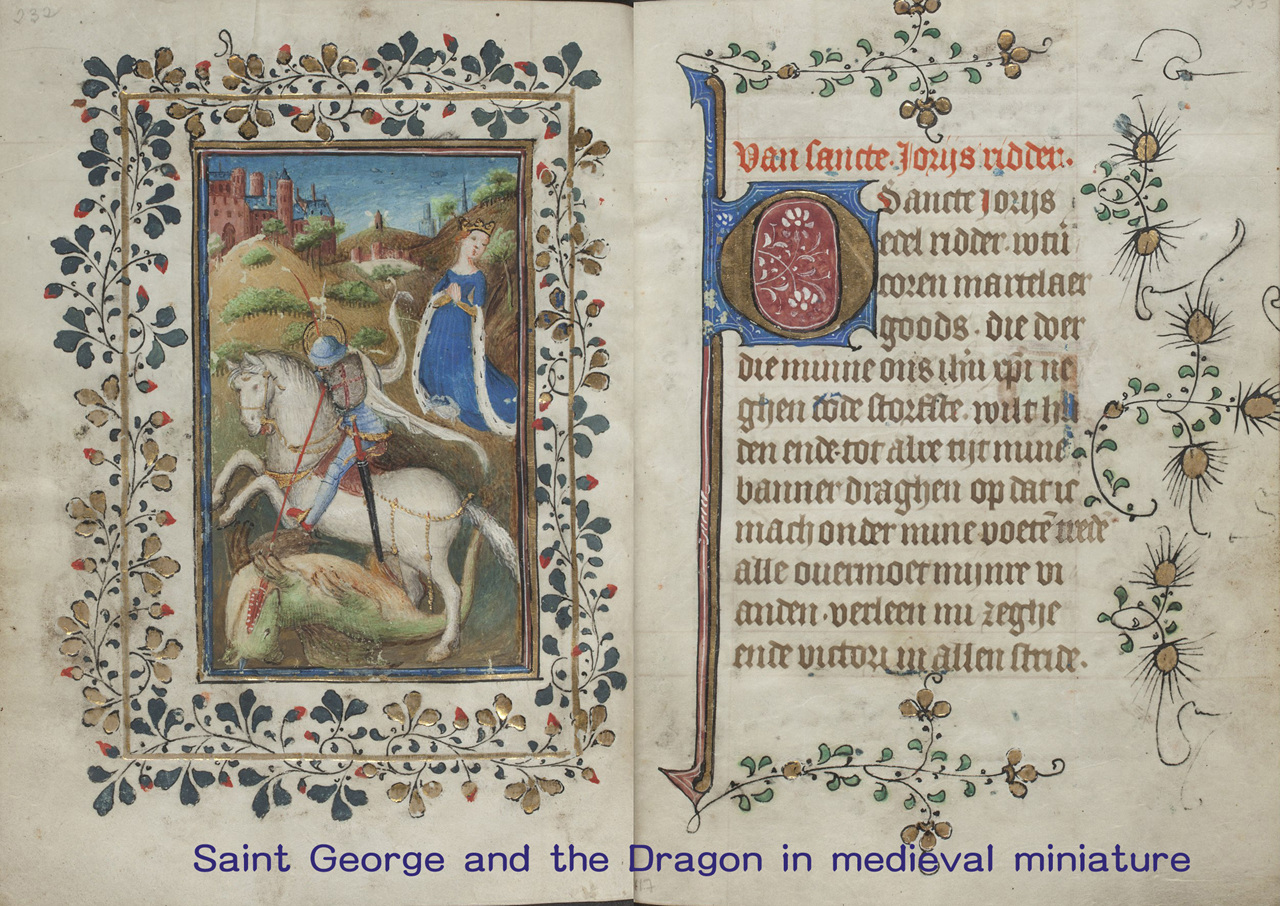 232
Van sancte Jorijs ridder.
O Sancte Jorijs
edel ridder wtũ
coren martelaer
goods. die doer
die minne ons ihũ xp̃i ne
ghen dode storfste. wilt hu
den ende tot alre tijt mine
banner draghen op dat ic
mach onder mine voetẽ trede
alle ouermoet mijnre vi
anden. verleen mi zeghe
ende victori in allen stride.
Saint George and the Dragon in medieval miniature